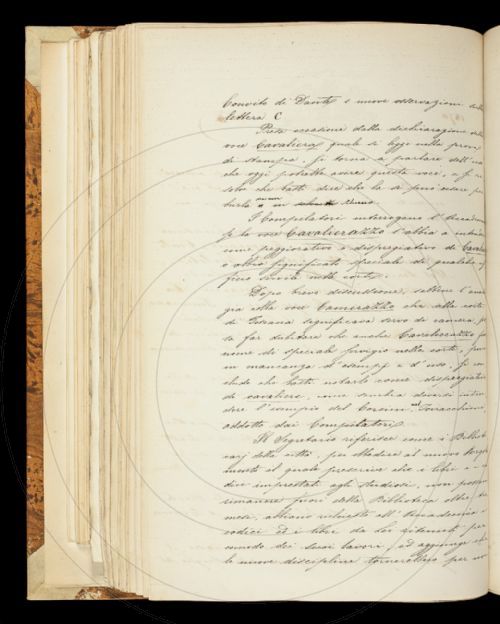 Convito di Dante e nuove osservazioni sulla
lettera C
Presa occasione dalla dichiarazione della
voce Cavaliera quale si legge nella prova
di stampa, si torna a parlare dell'uso
che oggi potrebbe avere questa voce, e si
solo che tutti dire che la si può usare per
burla
I Compilatori interrogano l'Accademia
se la voce Cavalierazzo l'abbia a intendere
come peggiorativo o dispregiativo di
o altro significato speciale di qualche
Dopo breve discussione, sebbene l'
gia della voce Camerazzo che alla corte
di Toscana significava servo di camera,
sa far dubitare che anche Cavalierazzo
nome di speciale servigio nella corte, pure
in mancanza d'esempj e d'uso, si con
clude che tutti notarlo come dispregiativo
di cavaliere, una diversa
dere l'esempio del Corsini nel Torracchione
addotto dai Compilatori.
Il Segretario riferisce come i Bibliote
carj della città, per obbedire al nuovo Regola
mento il quale prescrive che i libri e i co
dici imprestati agli studiosi, non possono
rimanere fuori della Biblioteca oltre
mesi, abbiano richiesto all'Accademia i
codici ed i libri da lei ritenuti per
comodo dei suoi lavori, ed aggiunge che
le nuove discipline tornerebbero per